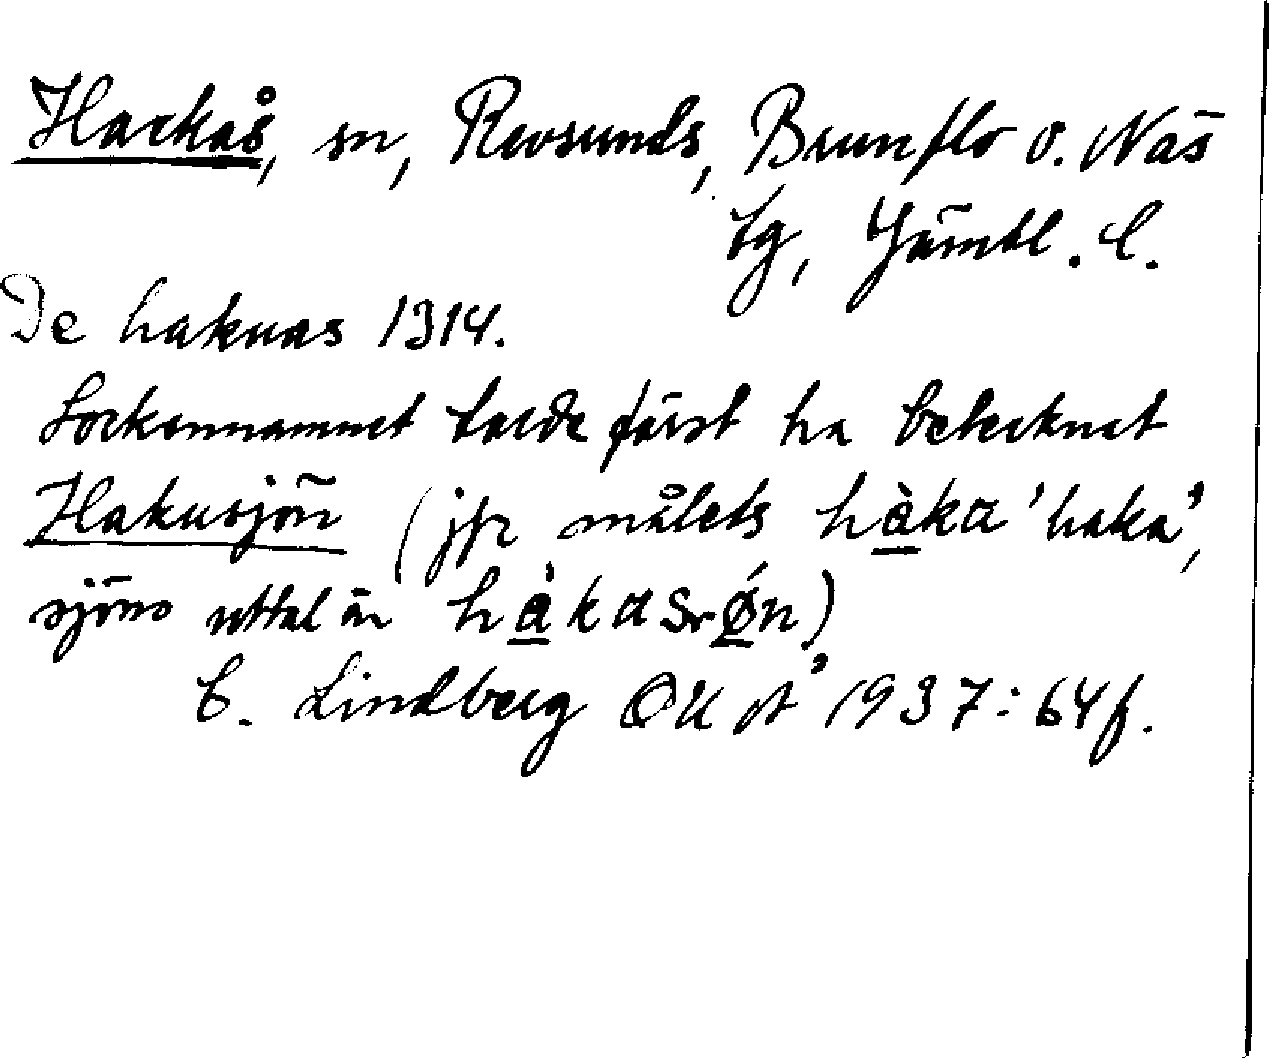 Hackås, sn, Revsunds, Brunflo o. Näs
tg, Jämtl. l.
De hakuas 1314.
Sockennamnet torde först ha betecknat
Hakusjön (jfr målets hàka 'haka',
sjöns uttal är hàkas øn)
C. Lindberg OKÅ 1937: 64 f.